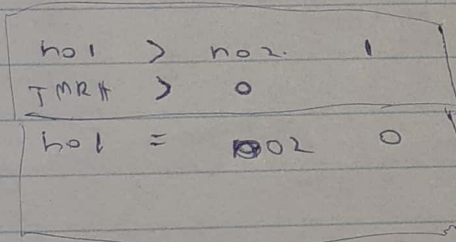 no1 > no2. 1
TMRH > 0
no1 = no2 0